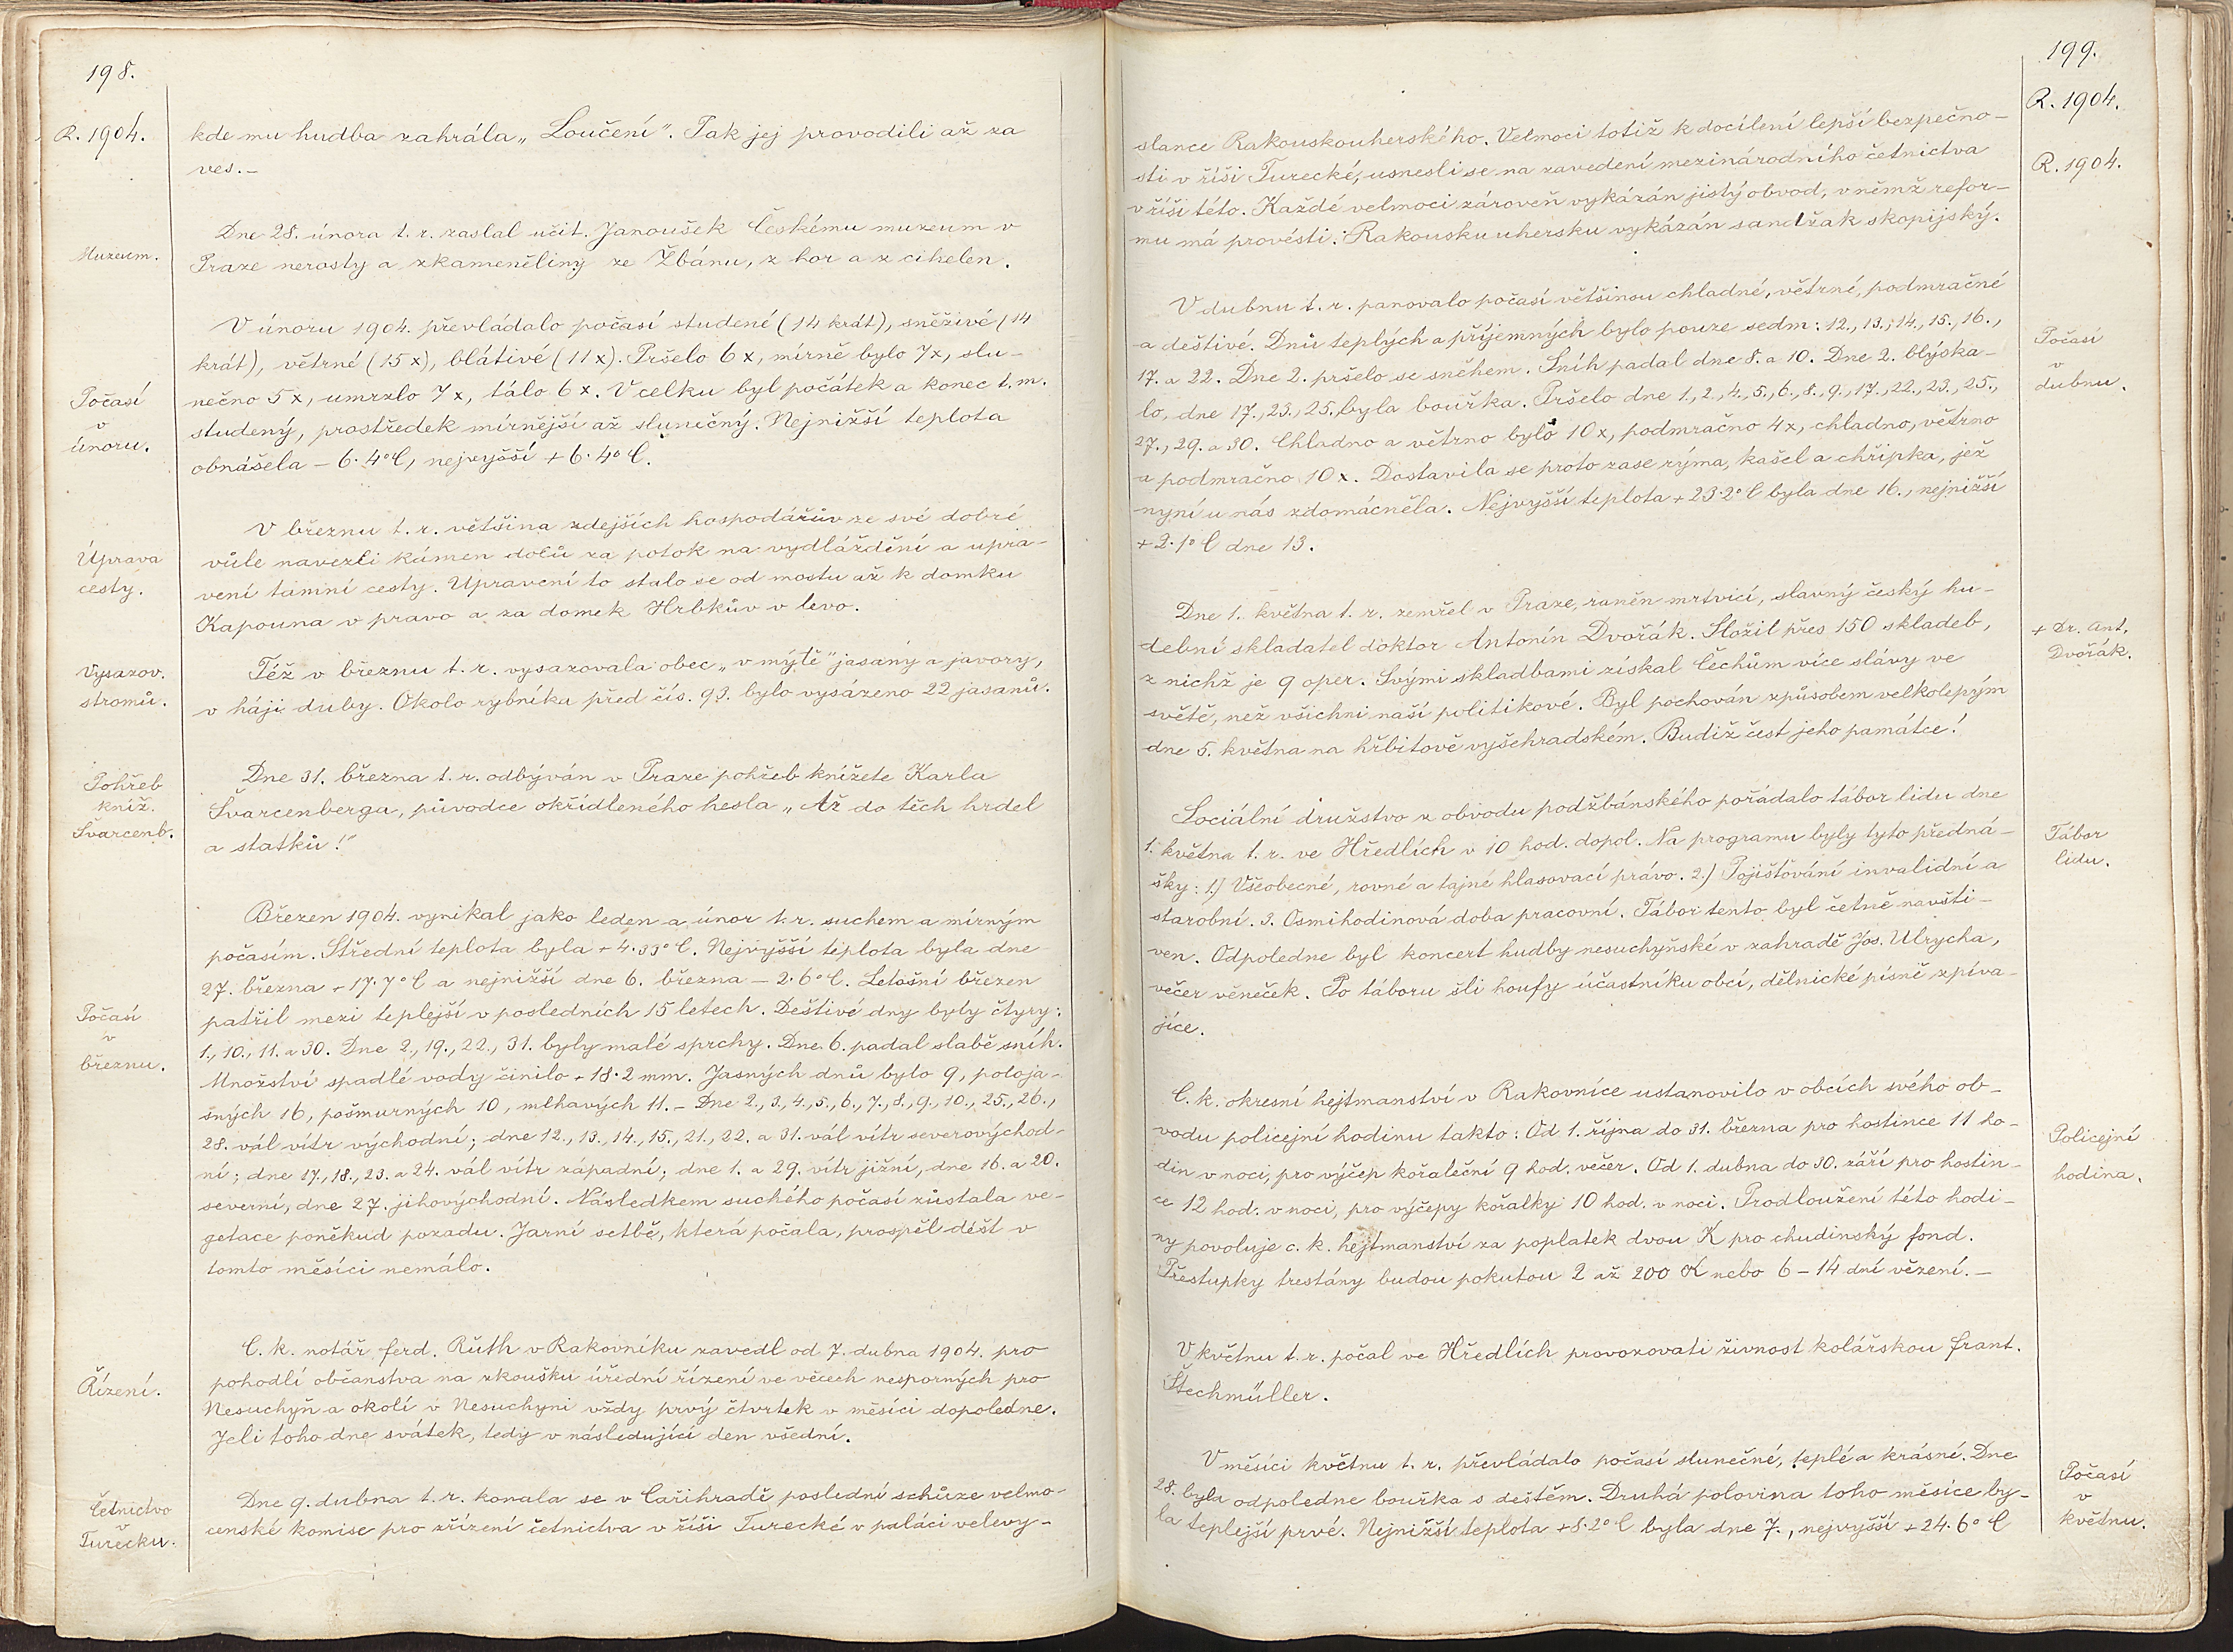 198.
R. 1904.
kde mu hudba zahrála „Loučení". Tak jej provodili až za
ves.–
Muzeum.
Dne 28. února t. r. zaslal učit. Janoušek Českému muzeum v
Praze nerosty a zkameněliny ze Žbánu, z hor a z cihelen.
Počasí
v
únoru.
V únoru 1904. převládalo počasí studené (14 krát), sněživé (14
krát), větrné (15 x), blátivé (11 x). Pršelo 6 x, mírně bylo 7x, slu-
nečno 5 x, umrzlo 7 x, tálo 6 x. V celku byl počátek a konec t. m.
studený, prostředek mírnější až slunečný. Nejnižší teplota
obnášela – 6·4° C, nejvyšší + 6·4° C.
Úprava
cesty.
V březnu t. r. většina zdejších hospodářův ze své dobré
vůle navezli kámen dolů za potok na vydláždění a upra-
vení tamní cesty. Upravení to stalo se od mostu až k domku
Kapouna v pravo a za domek Hrbkův v levo.
Vysazov.
stromů.
Též v březnu t. r. vysazovala obec „v mýtě" jasany a javory,
v háji duby. Okolo rybníka před čís. 93. bylo vysázeno 22 jasanů.
Pohřeb
kníž.
Švarcenb.
Dne 31. března t. r. odbýván v Praze pohřeb knížete Karla
Švarcenberga, původce okřídleného hesla „Až do těch hrdel
a statků!"
Počasí
v
březnu.
Březen 1904. vynikal jako leden a únor t. r. suchem a mírným
počasím. Střední teplota byla + 4·33° C. Nejvyšší teplota byla dne
27. března + 17·7° C a nejnižší dne 6. března – 2·6° C. Letošní březen
patřil mezi teplejší v posledních 15 letech. Deštivé dny byly čtyry:
1., 10., 11. a 30. Dne 2., 19., 22., 31. byly malé sprchy. Dne 6. padal slabě sníh.
Množství spadlé vody činilo + 18·2 mm. Jasných dnů bylo 9, poloja-
sných 16, pošmurných 10, mlhavých 11. – Dne 2., 3., 4., 5., 6., 7., 8., 9., 10., 25., 26.,
28. vál vítr východní; dne 12., 13., 14., 15., 21., 22. a 31. vál vítr severovýchod-
ní; dne 17., 18., 23. a 24. vál vítr západní; dne 1. a 29. vítr jižní, dne 16. a 20.
severní, dne 27. jihovýchodní. Následkem suchého počasí zůstala ve-
getace poněkud pozadu. Jarní setbě, která počala, prospěl déšt v
tomto měsíci nemálo.
Řízení.
C. k. notář ferd. Růth v Rakovníku zavedl od 7. dubna 1904. pro
pohodlí občanstva na zkoušku úřední řízení ve věcech nesporných pro
Nesuchyň a okolí v Nesuchyni vždy prvý čtvrtek v měsíci dopoledne.
Jeli toho dne svátek, tedy v následující den všední.
Četnictvo
v
Turecku.
Dne 9. dubna t. r. konala se v Cařihradě poslední schůze velmo-
censké komise pro zřízení četnictva v říši Turecké v paláci velevy-
199.
R. 1904.
R. 1904.
slance Rakouskouherského. Velmoci totiž k docílení lepší bezpečno-
sti v říši Turecké, usnesli se na zavedení mezinárodního četnictva
v říši této. Každé velmoci zároveň vykázán jistý obvod, v němž refor-
mu má provésti. Rakousku uhersku vykázán sandžak skopijský.
Počasí
v
dubnu.
V dubnu t. r. panovalo počasí většinou chladné, větrné, podmračné
a deštivé. Dnů teplých a příjemných bylo pouze sedm: 12., 13., 14., 15., 16.,
17. a 22. Dne 2. pršelo se sněhem. Sníh padal dne 8. a 10. Dne 2. blýska-
lo, dne 17., 23., 25. byla bouřka. Pršelo dne 1., 2., 4., 5., 6., 8., 9., 17., 22., 23., 25.,
27., 29. a 30. Chladno a větrno bylo 10 x, podmračno 4x, chladno, větrno
a podmračno 10 x. Dostavila se proto zase rýma, kašel a chřipka, jež
nyní u nás zdomácněla. Nejvyšší teplota + 23·2° C byla dne 16., nejnižší
+ 2·1° C dne 13.
+ Dr. Ant.
Dvořák.
Dne 1. května t. r. zemřel v Praze, raněn mrtvicí, slavný český hu-
dební skladatel doktor Antonín Dvořák. Složil přes 150 skladeb,
z nichž je 9 oper. Svými skladbami získal Čechům více slávy ve
světě, než všichni naší politikové. Byl pochován způsobem velkolepým
dne 5. května na hřbitově vyšehradském. Budiž čest jeho památce!
Tábor
lidu.
Sociální družstvo z obvodu podžbánského pořádalo tábor lidu dne
1. května t. r. ve Hředlích v 10 hod. dopol. Na programu byly tyto předná-
šky: 1.) Všeobecné, rovné a tajné hlasovací právo. 2.) Pojišťování invalidní a
starobní. 3. Osmihodinová doba pracovní. Tábor tento byl četně navští-
ven. Odpoledne byl koncert hudby nesuchyňské v zahradě Jos. Ulrycha,
večer věneček. Po táboru šli houfy účastníku obcí, dělnické písně zpíva-
jíce.
Policejní
hodina.
C. k. okresní hejtmanství v Rakovníce ustanovilo v obcích svého ob-
vodu policejní hodinu takto: Od 1. října do 31. března pro hostince 11 ho-
din v noci, pro výčep kořaleční 9 hod. večer. Od 1. dubna do 30. září pro hostin-
ce 12 hod. v noci, pro výčepy kořalky 10 hod. v noci. Prodloužení této hodi-
ny povoluje c. k. hejtmanství za poplatek dvou K pro chudinský fond.
Přestupky trestány budou pokutou 2 až 200 K nebo 6 – 14 dní vězení. –
V květnu t. r. počal ve Hředlích provozovati živnost kolářskou frant.
Štechmüller.
Počasí
v
květnu.
V měsíci květnu t. r. převládalo počasí slunečné, teplé a krásné. Dne
28. byla odpoledne bouřka s deštěm. Druhá polovina toho měsíce by-
la teplejší prvé. Nejnižší teplota + 8·2° C byla dne 7., nejvyšší + 24·6° C